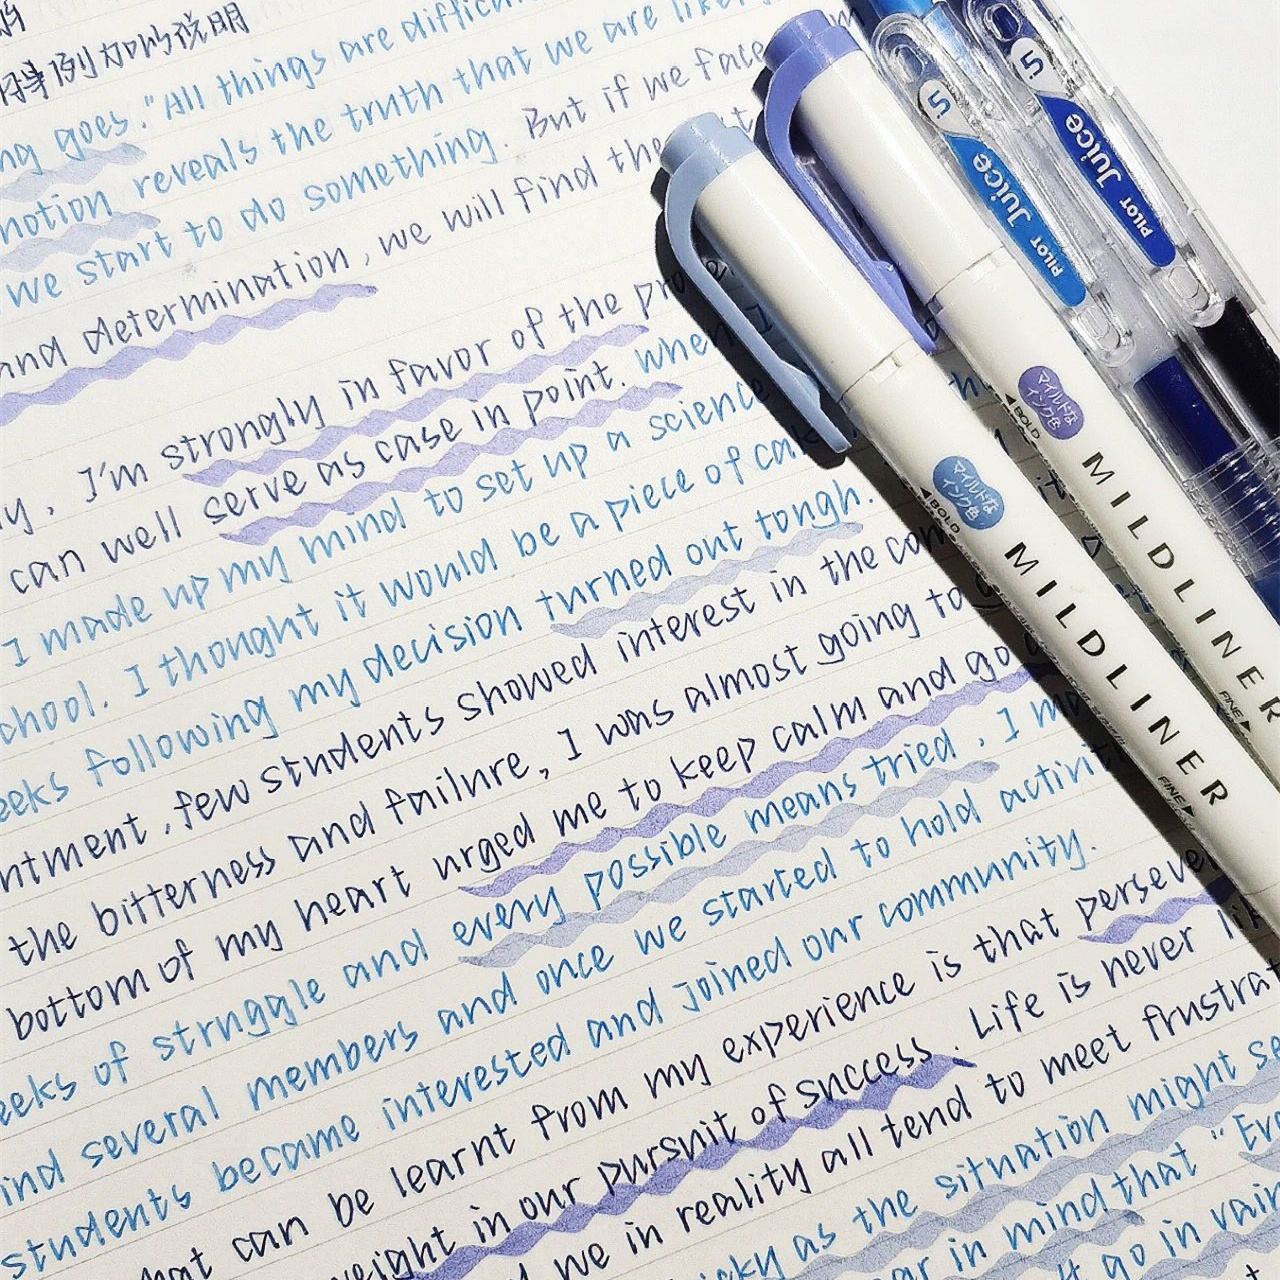 例如的说明
goes. "All things are
notion reveals the truth that we are
we start to do something. But if we face
and determination, we will find the
I'm strongly in favor of the
can well serve as case in point. when I
I made up my mind to set up a science
I thought it would be a piece of
following my decision turned out tough.
few students showed interest in the
the bitterness and failure, I was almost going to
bottom of my heart urged me to keep calm and go
of struggle and every possible means tried, I
and several members and once we started to hold
students became interested and joined our community.
can be learnt from my experience is that
in our pursuit of success. Life is never
we in reality all tend to meet
as the situation might
in mind that "
go in vain
5
Juice
PILOT
5
Juice
PILOT
マイルドな
インク色
◀BOLD
MILDLINER
FINE▶
マイルドな
インク色
◀BOLD
MILDLINER
FINE▶